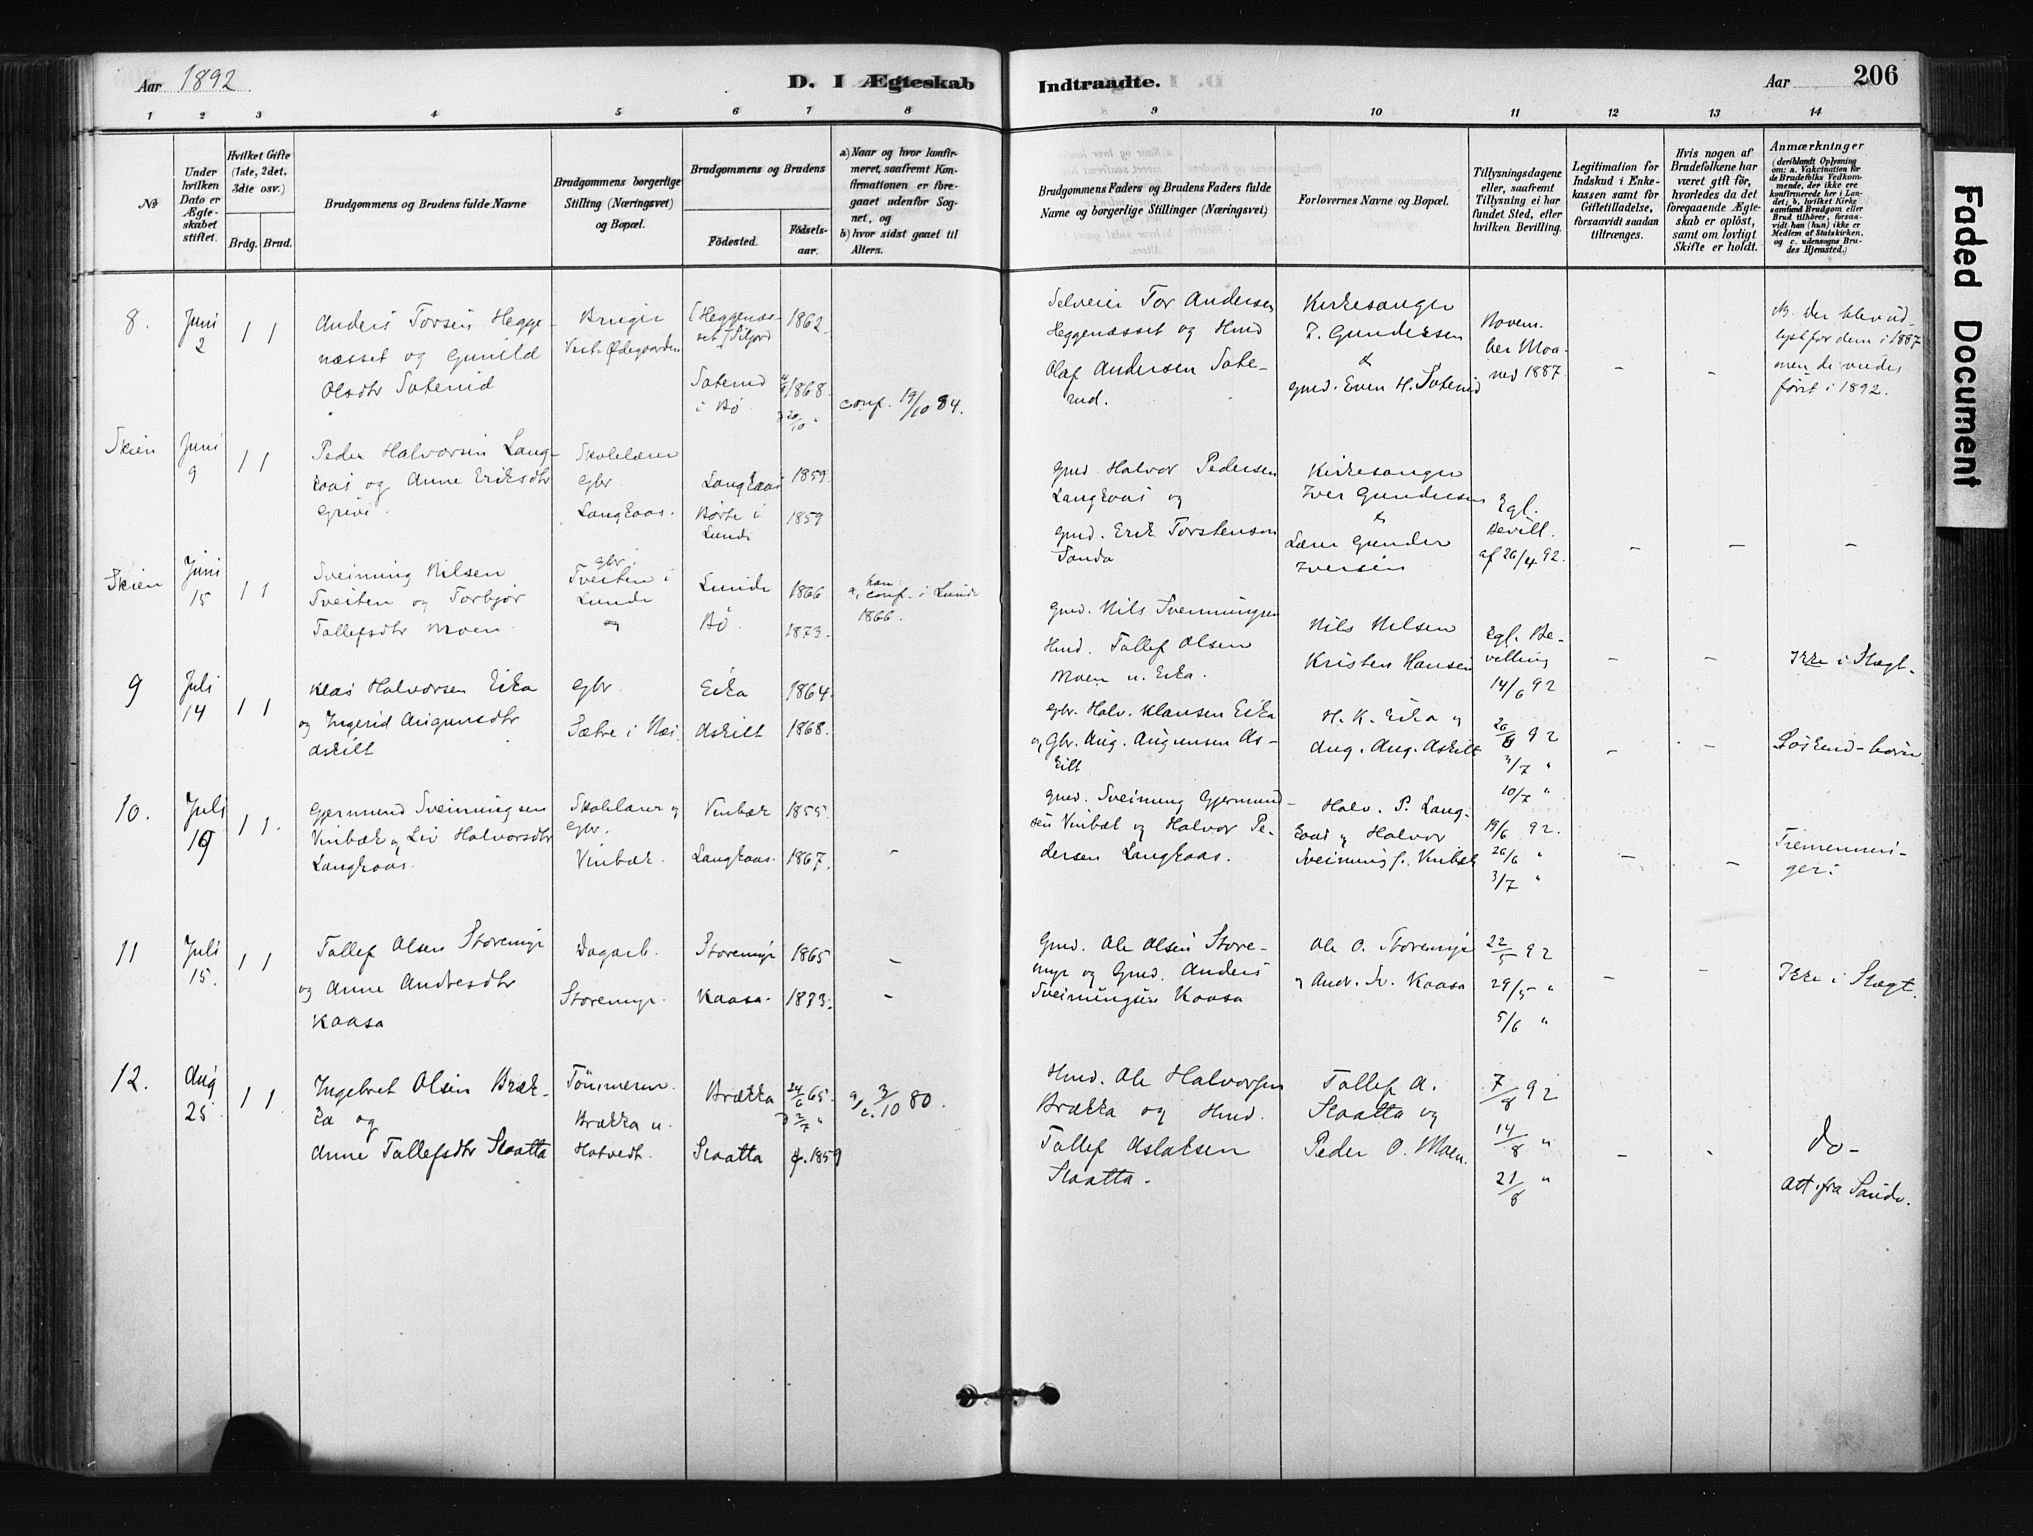 Aar 1892.
D. I Ægteskab
Indtraadte.
Aar
206
1 2 3 4 5 6 7 8 9 10 11 12 13 14
No
Under hvilken Dato er Ægteskabet stiftet.
Hvilket Gifte (1ste, 2det, 3die osv.)
Brdg. Brud.
Brudgommens og Brudens fulde Navne
Brudgommens borgerlige Stilling (Næringsvei) og Bopæl.
Brudgommens og Brudens
Födested.
Födselsaar.
a) Naar og hvor konfirmeret, saafremt Konfirmationen er foregaaet udenfor Sognet, og
b) hvor sidst gaaet til Alters.
Brudgommens Faders og Brudens Faders fulde Navne og borgerlige Stillinger (Næringsvei)
Forlovernes Navne og Bopæl.
Tillysningsdagene eller, saafremt Tillysning ei har fundet Sted, efter hvilken Bevilling.
Legitimation for Indskud i Enkekassen samt for Giftetilladelse, forsaavidt saadan tiltrænges.
Hvis nogen af Brudefolkene har været gift för, hvorledes da det foregaaende Ægteskab er oplöst, samt om lovligt Skifte er holdt.
Anmærkninger
(deriblandt Oplysning om: a. Vakcination for de Brudefolks Vedkommende, der ikke ere konfirmerede her i Landet; b. hvilket Kirkesamfund Brudgom eller Brud tilhörer, forsaavidt han (hun) ikke er Medlem af Statskirken, og c. udensogns Brudes Hjemsted.)
8.
Juni 2
1 1
Anders Torsen Heggenæsset og Gunild Olsdtr Saterud
Bruger
Vest. Ødegaarden
Heggenæsset / Siljord
1862
Saterud i Bø
1868.
conf. 19/10 84.
Selveier Tor Andersen Heggenæsset og Hmd Olaf Andersen Saterud.
Kirkesanger I. Gundersen
&
gmd. Even H. Saterud
November Maaned 1887.
- -
NB. Der blev udlyst for dem i 1887 men de viedes först i 1892.
Skien
Juni 9
1 1
Peder Halvorsen Langkaas og Anne Eriksdtr Grivi.
Skolelærer
gbr.
Langkaas.
Langkaas
1859.
Børte i Lunde
1859
gmd. Halvor Pedersen Langkaas og
gmd. Erik Torstensen Sanda
Kirkesanger Iver Gundersen
&
Lærer Gunder Iversen
Kgl. Bevill. af 26/4 92.
- - -
Skien
Juni 15
1 1
Sveinung Nilsen Tveiten og Torbjør Tallefsdtr Moen.
gbr. Tveiten i Lunde
Lunde
1866
Bø.
1873.
a, han conf. i Lunde 1866.
gmd. Nils Svenningsen
Hmd. Tallef Olsen Moen u. Eika.
Nils Nilsen
Kristen Hansen
Kgl. Bevilling 14/6 92
- -
Ikke i Slægt.
9
Juli 14
1 1
Klas Halvorsen Eika og Ingerid Augunsdtr Askilt
gbr.
Sætre i Næs.
Eika
1864.
Askilt
1868.
gbr. Halv. Klausen Eika og Gbr. Aug. Augunsen Askilt
H. K. Eika og
Aug. Aug. Askilt
26/6 92
3/7 "
10/7 "
- -
Söskend-börn.
10.
Juli 19
1 1.
Gjermund Sveinungsen Vinbæk og Liv Halvorsdtr Langkaas.
Skolelærer og Gbr.
Vinbæk.
Vinbæk
1855.
Langkaas.
1867.
-
gmd. Sveinung Gjermundsen Vinbæk og Halvor Pedersen Langkaas.
Halv. P. Langkaas og Halvor Sveinungs. Vinbæk
19/6 92.
26/6 "
3/7 "
- -
Tremenninger.
11
Juli 15.
1 1
Tallef Olsen Storemyr og Anne Andresdtr Kaasa
Dagarb.
Storemyr.
Storemyr
1865
-
Kaasa.
1873.
-
Gmd. Ole Olsen Storemyr og Gmd. Anders Sveinungsen Kaasa
Ole O. Storemyr
og Andr. Sv. Kaasa
22/5 92
29/5 "
5/6 "
- -
Ikke i Slægt.
12.
Aug 25
1 1
Ingebret Olsen Brækka og
Anne Tallefsdtr Slaatta
Tömmerm.
Brækka u. Hotvedt.
Brækka
24/6 65.
2/7 "
Slaatta
1859
a/c. 3/10 80.
Hmd. Ole Halvorsen Brækka og Hmd. Tallef Aslaksen Slaatta.
Tallef A. Slaatta og
Peder O. Moen.
7/8 92
14/8 "
21/8 "
- -
do -
Att. fra Saude.
Faded Document